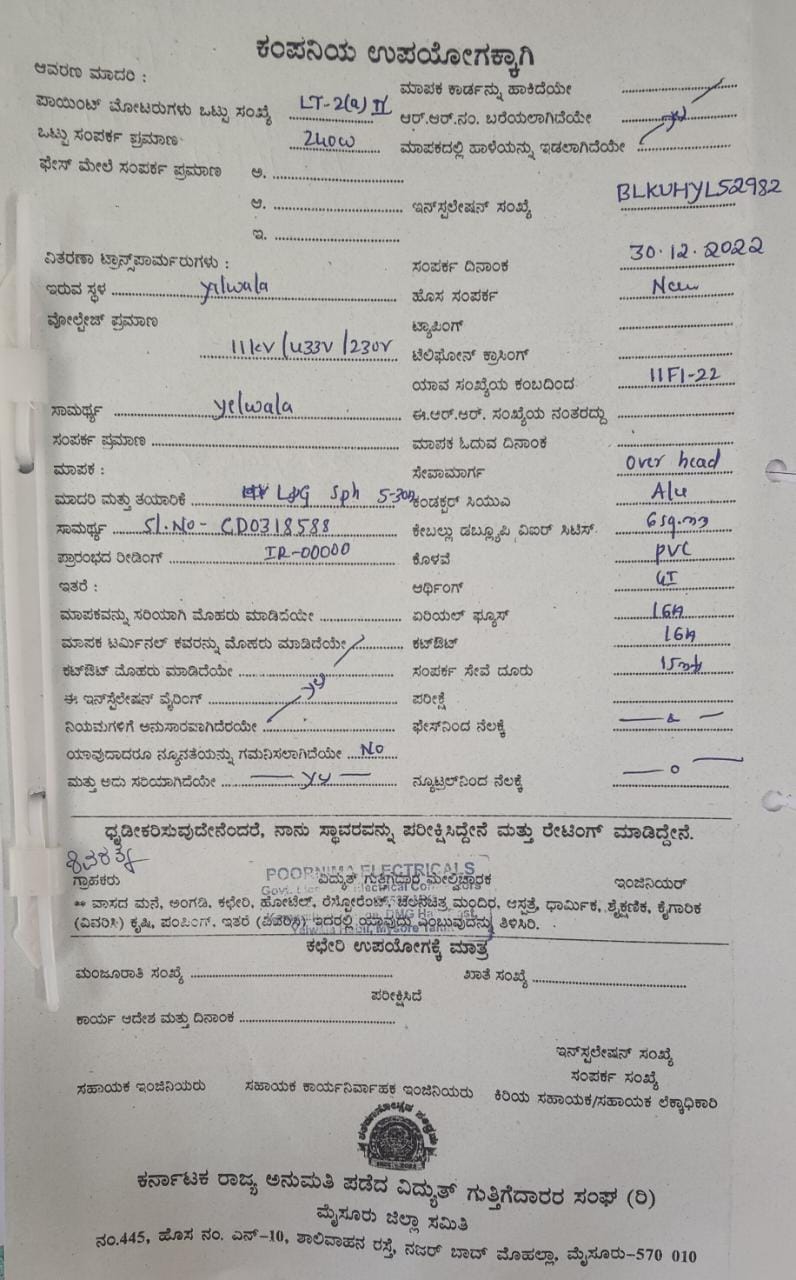 ಕಂಪನಿಯ ಉಪಯೋಗಕ್ಕಾಗಿ
ಆವರಣ ಮಾದರಿ :
ಮಾಪಕ ಕಾರ್ಡನ್ನು ಹಾಕಿದೆಯೇ
ಪಾಯಿಂಟ್ ಮೋಟರುಗಳು ಒಟ್ಟು ಸಂಖ್ಯೆ LT-2(a) II
ಆರ್.ಆರ್.ನಂ. ಬರೆಯಲಾಗಿದೆಯೇ
ಒಟ್ಟು ಸಂಪರ್ಕ ಪ್ರಮಾಣ 240W
ಮಾಪಕದಲ್ಲಿ ಹಾಳೆಯನ್ನು ಇಡಲಾಗಿದೆಯೇ
ಫೇಸ್ ಮೇಲೆ ಸಂಪರ್ಕ ಪ್ರಮಾಣ ಅ.
ಆ. ಇನ್‌ಸ್ಟಲೇಷನ್ ಸಂಖ್ಯೆ BLKUHYL52982
ಇ.
ವಿತರಣಾ ಟ್ರಾನ್ಸ್‌ಪಾರ್ಮರುಗಳು : ಸಂಪರ್ಕ ದಿನಾಂಕ 30.12.2022
ಇರುವ ಸ್ಥಳ yelwala ಹೊಸ ಸಂಪರ್ಕ New
ವೋಲ್ಟೇಜ್ ಪ್ರಮಾಣ ಟ್ಯಾಪಿಂಗ್
11kv /433V /230V ಟೆಲಿಫೋನ್ ಕ್ರಾಸಿಂಗ್
ಯಾವ ಸಂಖ್ಯೆಯ ಕಂಬದಿಂದ 11F1-22
ಸಾಮರ್ಥ್ಯ yelwala ಈ.ಆರ್.ಆರ್. ಸಂಖ್ಯೆಯ ನಂತರದ್ದು
ಸಂಪರ್ಕ ಪ್ರಮಾಣ ಮಾಪಕ ಓದುವ ದಿನಾಂಕ
ಮಾಪಕ : ಸೇವಾಮಾರ್ಗ Over head
ಮಾದರಿ ಮತ್ತು ತಯಾರಿಕೆ L&G Sph 5-30A ಕಂಡಕ್ಟರ್ ಸಿಯುವಿ Alu
ಸಾಮರ್ಥ್ಯ Sl.No- CD0318588 ಕೇಬಲ್ಲು ಡಬ್ಲ್ಯೂಪಿ ವಿಐರ್ ಸಿಟಿಸ್. 6sq.mm
ಪ್ರಾರಂಭದ ರೀಡಿಂಗ್ IR-00000 ಕೊಳವೆ PVC
ಇತರೆ : ಆರ್ಥಿಂಗ್ GI
ಮಾಪಕವನ್ನು ಸರಿಯಾಗಿ ಮೊಹರು ಮಾಡಿದೆಯೇ ಏರಿಯಲ್ ಫ್ಯೂಸ್ 16A
ಮಾಪಕ ಟರ್ಮಿನಲ್ ಕವರನ್ನು ಮೊಹರು ಮಾಡಿದೆಯೇ ಕಟ್‌ಔಟ್ 16A
ಕಟ್‌ಔಟ್ ಮೊಹರು ಮಾಡಿದೆಯೇ ಸಂಪರ್ಕ ಸೇವೆ ದೂರು
ಈ ಇನ್‌ಸ್ಟಲೇಷನ್ ವೈರಿಂಗ್ ಪರೀಕ್ಷೆ
ನಿಯಮಗಳಿಗೆ ಅನುಸಾರವಾಗಿದೆರೆಯೇ ಫೇಸ್‌ನಿಂದ ನೆಲಕ್ಕೆ
ಯಾವುದಾದರೂ ನ್ಯೂನತೆಯನ್ನು ಗಮನಿಸಲಾಗಿದೆಯೇ No
ಮತ್ತು ಅದು ಸರಿಯಾಗಿದೆಯೇ ನ್ಯೂಟ್ರಲ್‌ನಿಂದ ನೆಲಕ್ಕೆ
ಧೃಡೀಕರಿಸುವುದೇನೆಂದರೆ, ನಾನು ಸ್ಥಾವರವನ್ನು ಪರೀಕ್ಷಿಸಿದ್ದೇನೆ ಮತ್ತು ರೇಟಿಂಗ್ ಮಾಡಿದ್ದೇನೆ.
POORNIMA ELECTRICALS
ಗ್ರಾಹಕರು ವಿದ್ಯುತ್ ಗುತ್ತಿಗೆದಾರ ಮೇಲ್ವಿಚಾರಕ ಇಂಜಿನಿಯರ್
** ವಾಸದ ಮನೆ, ಅಂಗಡಿ, ಕಛೇರಿ, ಹೋಟೆಲ್, ರೆಸ್ಟೋರೆಂಟ್, ಚಲನಚಿತ್ರ ಮಂದಿರ, ಆಸ್ಪತ್ರೆ, ಧಾರ್ಮಿಕ, ಶೈಕ್ಷಣಿಕ, ಕೈಗಾರಿಕ
(ವಿವರಿಸಿ) ಕೃಷಿ, ಪಂಪಿಂಗ್, ಇತರೆ (ವಿವರಿಸಿ) ಇದರಲ್ಲಿ ಯಾವುದು ಎಂಬುವುದನ್ನು ತಿಳಿಸಿರಿ.
ಕಛೇರಿ ಉಪಯೋಗಕ್ಕೆ ಮಾತ್ರ
ಮಂಜೂರಾತಿ ಸಂಖ್ಯೆ ಖಾತೆ ಸಂಖ್ಯೆ
ಪರೀಕ್ಷಿಸಿದೆ
ಕಾರ್ಯ ಆದೇಶ ಮತ್ತು ದಿನಾಂಕ
ಇನ್‌ಸ್ಟಲೇಷನ್ ಸಂಖ್ಯೆ
ಸಂಪರ್ಕ ಸಂಖ್ಯೆ
ಸಹಾಯಕ ಇಂಜಿನಿಯರು ಸಹಾಯಕ ಕಾರ್ಯನಿರ್ವಾಹಕ ಇಂಜಿನಿಯರು ಕಿರಿಯ ಸಹಾಯಕ/ಸಹಾಯಕ ಲೆಕ್ಕಾಧಿಕಾರಿ
ಕರ್ನಾಟಕ ರಾಜ್ಯ ಅನುಮತಿ ಪಡೆದ ವಿದ್ಯುತ್ ಗುತ್ತಿಗೆದಾರರ ಸಂಘ (ರಿ)
ಮೈಸೂರು ಜಿಲ್ಲಾ ಸಮಿತಿ
ನಂ.445, ಹೊಸ ನಂ. ಎನ್-10, ಶಾಲಿವಾಹನ ರಸ್ತೆ, ನಜರ್ ಬಾದ್ ಮೊಹಲ್ಲಾ, ಮೈಸೂರು-570 010